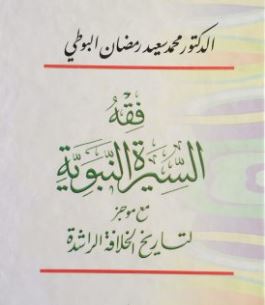 الدكتور محمد سعيد رمضان البوطي
فِقْهُ
السِّيرَةِ النَّبَوِيَّةِ
مع موجز
لتاريخ الخلافة الراشدة